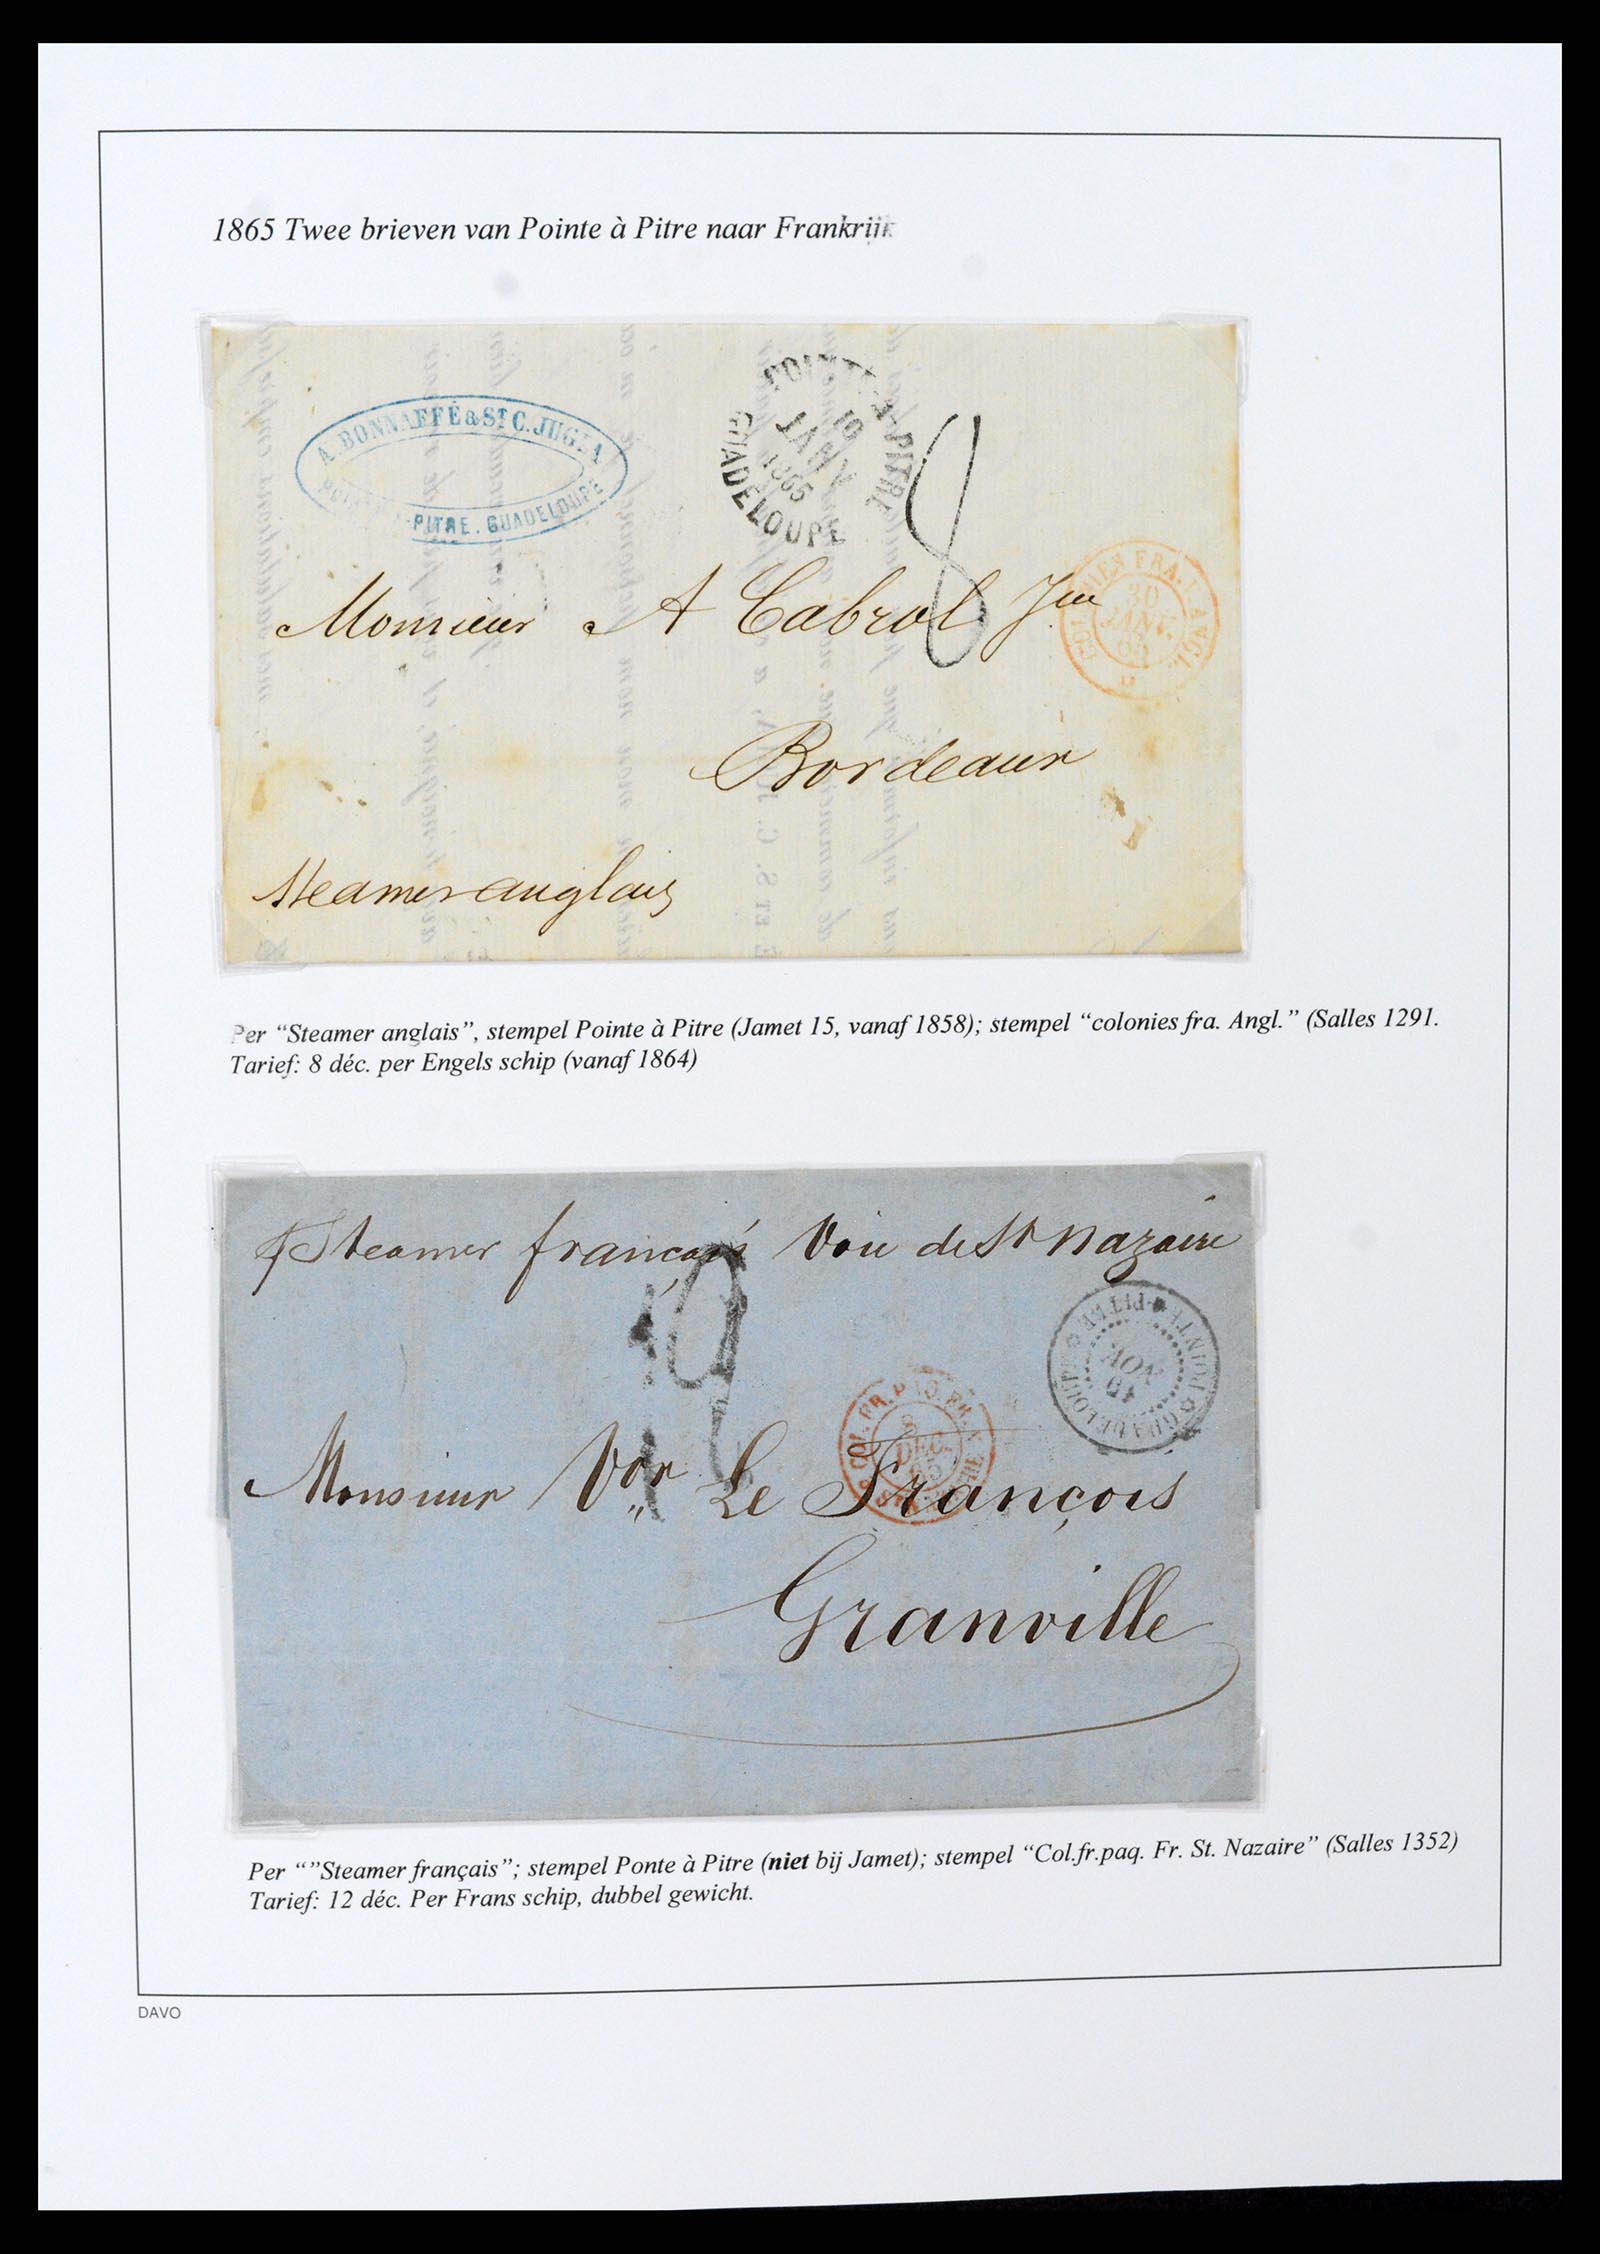 1865 Twee brieven van Pointe à Pitre naar Frankrijk
A. BONNAFFÉ & ST. C. JUGLA
POINTE-A-PITRE. GUADELOUPE
POINTE-A-PITRE
10
JANV
1865
GUADELOUPE
8
COLONIES FRA. V. ANGL.
30
JANV.
65
Monsieur A Cabrol Jne
Bordeaux
Steamer anglais
Per “Steamer anglais”, stempel Pointe à Pitre (Jamet 15, vanaf 1858); stempel “colonies fra. Angl.” (Salles 1291.
Tarief: 8 déc. per Engels schip (vanaf 1864)
Steamer français Voie de St Nazaire
POINTE-A-PITRE
NOV
GUADELOUPE
COL. FR. PAQ. FR.
DEC.
65
ST NAZAIRE
Monsieur Vor Le François
Granville
Per “”Steamer français”; stempel Ponte à Pitre (niet bij Jamet); stempel “Col.fr.paq. Fr. St. Nazaire” (Salles 1352)
Tarief: 12 déc. Per Frans schip, dubbel gewicht.
DAVO